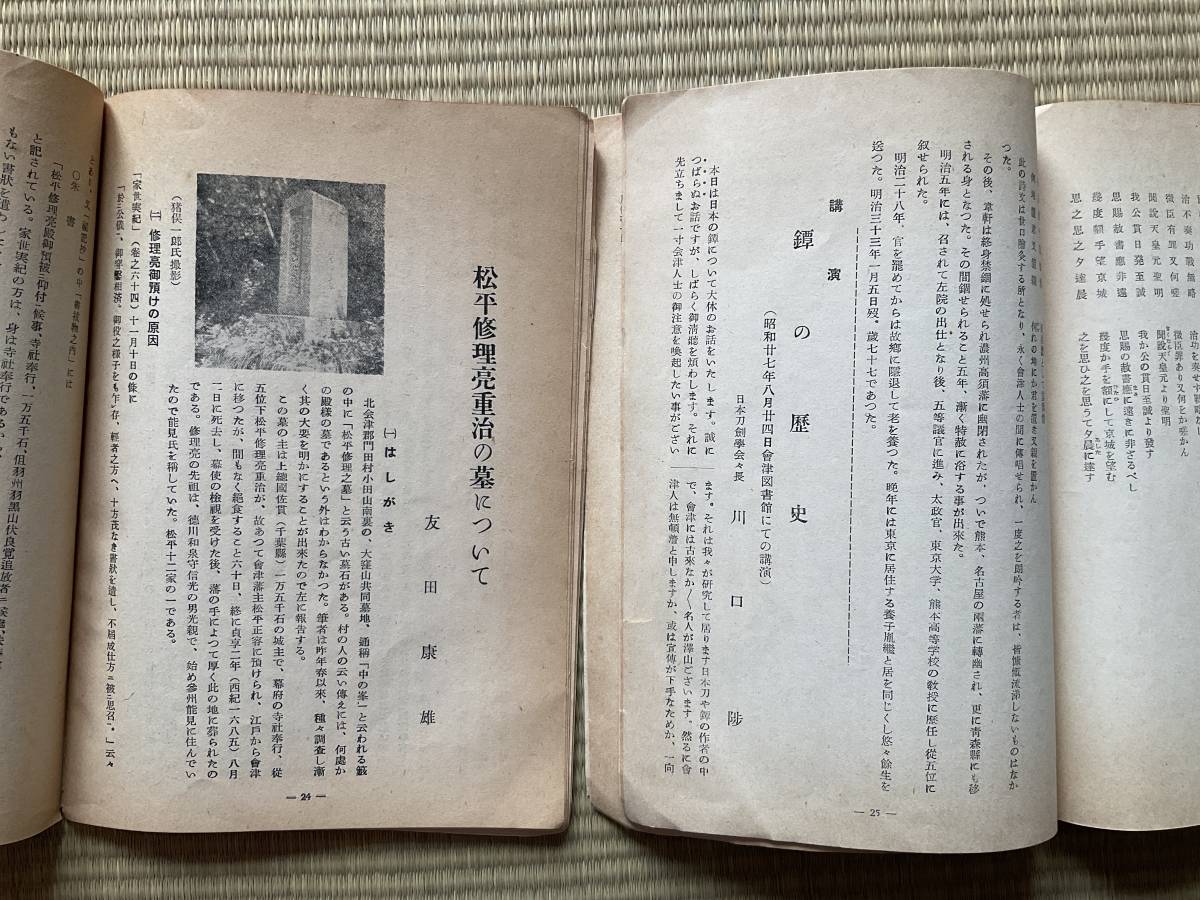 松平修理亮重治の墓について
友田康雄
㈠はしがき
北会津郡門田村小田山南裏の、大窪山共同墓地、通稱「中の峯」と云われる籔
の中に「松平修理之墓」と云う古い墓石がある。村の人の云い傳えには、何處か
の殿様の墓であるという外はわからなかつた。筆者は昨年春以来、種々調査し漸
く其の大要を明かにすることが出来たので左に報告する。
この墓の主は上總國佐貫（千葉縣）一万五千石の城主で、幕府の寺社奉行、從
五位下松平修理亮重治が、故あつて會津藩主松平正容に預けられ、江戸から會津
に移つたが、間もなく絶食すること六十日、終に貞享二年（西紀一六八五）八月
二日に死去し、幕使の檢視を受けた後、藩の手によつて厚く此の地に葬られたの
である。修理亮の先祖は、德川和泉守信光の男光親で、始め參州能見に住んでい
たので能見氏を稱していた。松平十二家の一である。
（猪俣一郎氏撮影）
㈡ 修理亮御預けの原因
「家世実紀」（卷之六十四）十一月十日の條に
とあり、又
○朱書
「松平修理亮殿御預被二仰付一候事、寺社奉行、一万五千石、但羽州羽黒山伏良覚追放者
と記されている。家世実紀の方は、身は寺社奉行である
もない書狀を遣わ
— 24 —
此の詩文は世口膾炙する所となり、永く會津人士の間に傳唱せられ、一度之を朗吟する者は、皆慷慨流涕しないものはなか
つた。
その後、韋軒は終身禁錮に処せられ濃州高須藩に幽閉されたが、ついで熊本、名古屋の兩藩に轉幽され、更に靑森縣にも移
される身となつた。その間錮せられること五年、漸く特赦に浴する事が出来た。
明治五年には、召されて左院の出仕となり後、五等議官に進み、太政官、東京大学、熊本高等学校の教授に歴任し從五位に
叙せられた。
明治二十八年、官を罷めてからは故郷に隱退して老を養つた。晩年には東京に居住する養子胤繼と居を同じくし悠々餘生を
送つた。明治三十三年一月五日歿。歳七十七であつた。
講演
鐔の歴史
（昭和廿七年八月廿四日會津図書館にての講演）
日本刀劍學會々長 川口陟
本日は日本の鐔について大体のお話をいたします。誠に
つばらぬお話ですが、しばらく御淸聽を煩わします。それに
先立ちまして一寸会津人士の御注意を喚起したい事がござい
ます。それは我々が研究して居ります日本刀や鐔の作者の中
で、會津には古来なか〱名人が澤山ございます。然るに會
津人は無頓着と申しますか、或は宣傳が下手なためか、一向
— 25 —
治不奏功戰無略
微臣有罪又何嗟
聞說天皇元聖明
我公貫日發至誠
恩賜赦書應非遠
幾度額手望京城
思之思之夕達晨
微臣罪あり又何をか嗟かん
聞說天皇元より聖明
我か公の貫日至誠より發す
恩賜の赦書應に遠きに非ざるべし
幾度か手を額にして京城を望む
之を思ひ之を思うて夕晨に達す